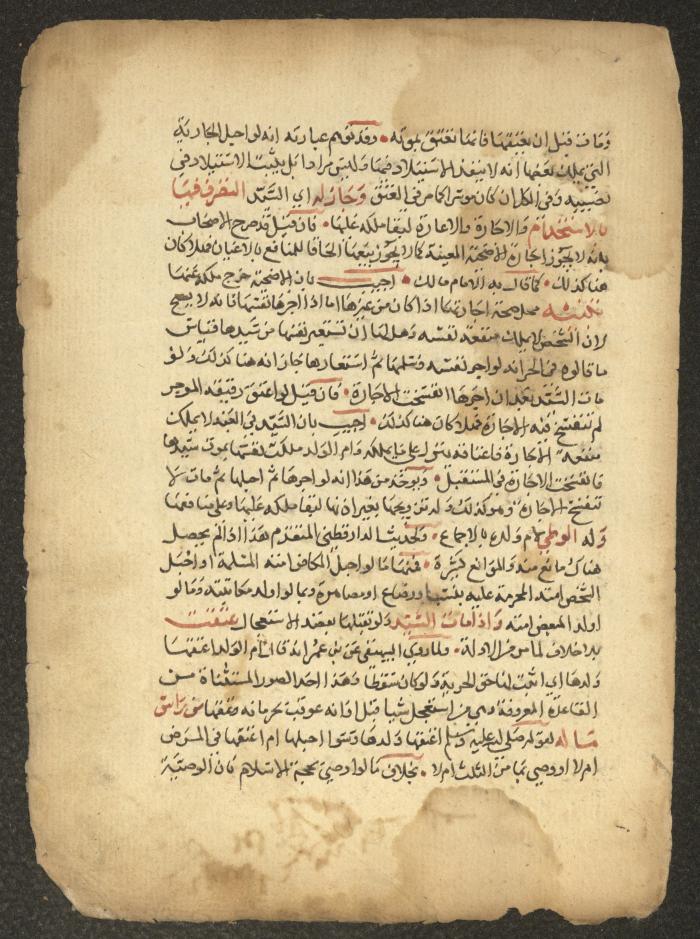 ومات قبل ان يعتقها فانها تعتق بموته • وقد توهم عبارته انه لو احبل الجارية
التي يملك بعضها انه لا ينفذ الاستيلاد فيها وليس مرادا بل يثبت الاستيلاد في
نصيبه وفي الكل ان كان موسرا كما مر في العتق وجاز له اي السيد التصرف فيها
بالاستخدام والاجارة والاعارة لبقاء ملكه عليها • فان قيل قد صرح الاصحاب
بانه لا يجوز اجارة الاضحية المعينة كما لا يجوز بيعها الحاقا للمنافع بالاعيان فهلا كان
هنا كذلك • كما قال به الامام مالك • اجيب بان الاضحية خرج ملكه عنها
تنبيه محل صحة اجارتها اذا كان من غيرها اما اذا اجرها نفسها فانه لا يصح
لان الشخص لا يملك منفعة نفسه وهل لها ان تستعير نفسها من سيدها قياس
ما قالوه في الحر انه لو اجر نفسه وسلمها ثم استعارها جاز انه هنا كذلك ولو
مات السيد بعد ان اجرها انفسخت الاجارة • فان قيل لو اعتق رقيقه الموجر
لم تنفسخ فيه الاجارة فهلا كان هنا كذلك • اجيب بان السيد في العبد لا يملك
منفعة الاجارة فاعتاقه ينزل على ما يملكه وام الولد ملكت نفسها بموت سيدها
فانفسخت الاجارة في المستقبل • ويوخذ من هذا انه لو اجرها ثم احبلها ثم مات لا
تنفسخ الاجارة وهو كذلك وله تزويجها بغير اذنها لبقاء ملكه عليها وعلى منافعها
وله الوطي لام ولده بالاجماع • ولحديث الدارقطني المتقدم هذا اذا لم يحصل
هناك مانع منه والموانع كثيرة • فمنها ما لو احبل الكافر امته المسلمة او احبل
الشخص امته المحرمة عليه بنسب او رضاع او مصاهرة وما لو اولد مكاتبته وما لو
اولد المبعض امته واذا مات السيد ولو بقتلها بقصد الاستعجال عتقت
بلا خلاف لما مر من الادلة • ولما روى البيهقي عن بن عمر انه قال ام الولد اعتقها
ولدها اي اثبت لها حق الحرية ولو كان سقطا وهذا احد الصور المستثناة من
القاعدة المعروفة وهي من استعجل شيا قبل اوانه عوقب بحرمانه وعتقها من راس
ماله لقوله صلى الله عليه وسلم اعتقها ولدها وسوا احبلها ام اعتقها في المرض
ام لا او وصى بها من الثلث ام لا • بخلاف ما لو اوصى بحجة الاسلام فان الوصية